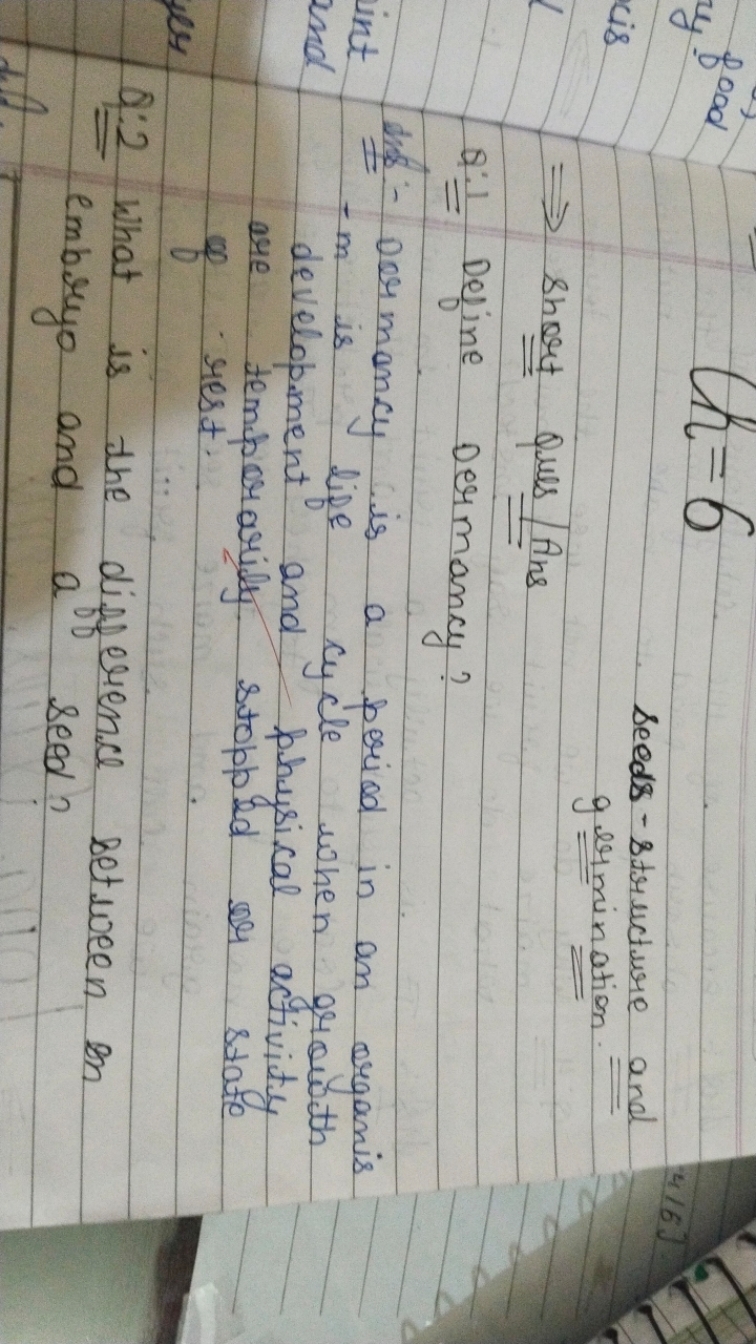 Ch = 6
Seeds - structure and
germination.
⇒ Short Ques / Ans
Q.1 Define Dormancy?
Ans :- Dormancy is a period in an organis
-m is life cycle when growth
development and physical activity
are temporarily stopped or state
of rest.
Q.2 What is the difference between an
embryo and a seed?
ny food
is
int
and